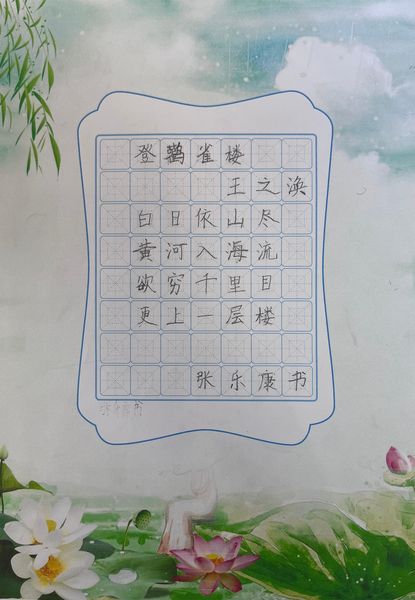 登鹳雀楼
王之涣
白日依山尽
黄河入海流
欲穷千里目
更上一层楼
张乐康书